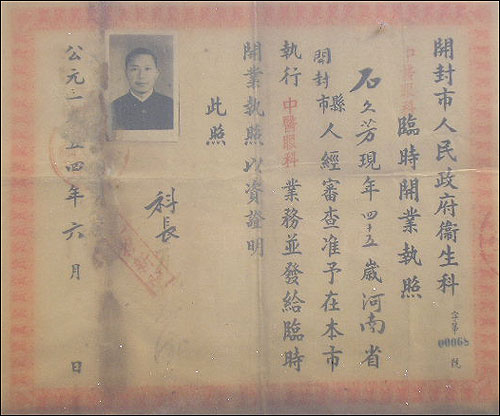 開封市人民政府衞生科
字第00068號
中醫眼科
臨時開業執照
石久芳現年四十五歲河南省
開封市縣人經審查准予在本市
執行中醫眼科業務並發給臨時
開業執照以資證明
此照
科長
公元一九五四年六月 日